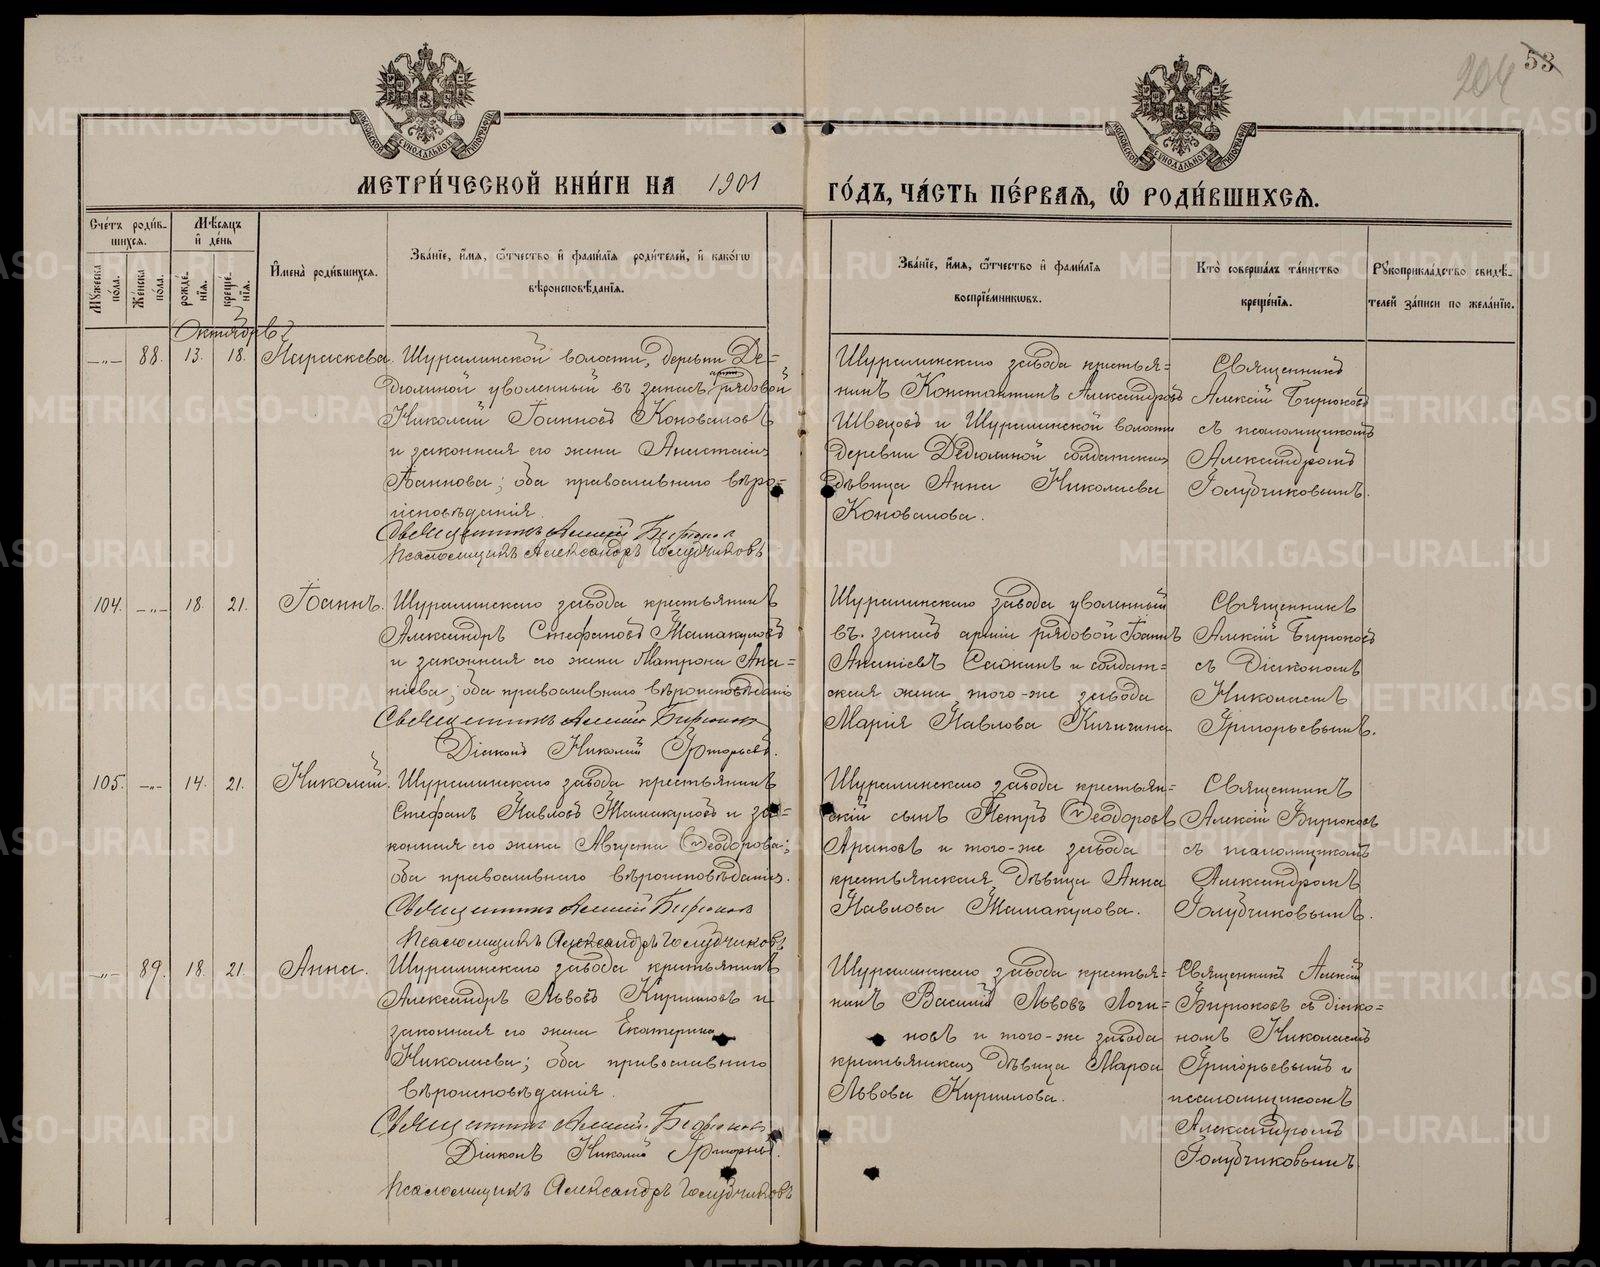 204 53
МЕТРИ́ЧЕСКОЙ КНИ́ГИ НА 1901 ГО́ДЪ, ЧА́СТЬ ПЕ́РВАѦ, Ѡ҆ РОДИ́ВШИХСѦ.
Сче́тъ роди́в-
шихсѧ.
Мꙋ́жеска
по́ла.
Же́нска
по́ла.
Мѣ́сѧцъ
и҆ де́нь
рожде́-
нїѧ.
креще́-
нїѧ.
И҆мена̀ роди́вшихсѧ.
Зва́нїе, и҆́мѧ, ѻ҆́тчество и҆ фами́лїѧ роди́телей, и҆ како́гѡ
вѣроисповѣ́данїѧ.
Зва́нїе, и҆́мѧ, ѻ҆́тчество и҆ фами́лїѧ
воспрїе́мникѡвъ.
Кто̀ соверша́лъ та́инство
креще́нїѧ.
Рꙋкоприкла́дство свидѣ́-
телей за́писи по жела́нїю.
Октябрь
—„— 88. 13. 18. Параскева.
Шуралинской волости, деревни Де-
дюлиной уволенный въ запасъ арміи рядовой
Николай Іоанновъ Коноваловъ
и законная его жена Анастасія
Іоаннова; оба православнаго вѣро-
исповѣданія.
Священникъ Алексій Бирюковъ
Псаломщикъ Александръ Голубчиковъ
Шуралинскаго завода крестья-
нинъ Константинъ Александровъ
Швецовъ и Шуралинской волости
деревни Дедюлиной солдатская
дѣвица Анна Николаева
Коновалова.
Священникъ
Алексій Бирюковъ
съ псаломщикомъ
Александромъ
Голубчиковымъ.
104. —„— 18. 21. Іоаннъ.
Шуралинскаго завода крестьянинъ
Александръ Стефановъ Жамакуловъ
и законная его жена Матрона Ана-
ніева; оба православнаго вѣроисповѣданія
Священникъ Алексій Бирюковъ
Діаконъ Николай Григорьевъ.
Шуралинскаго завода уволенный
въ запасъ арміи рядовой Іоаннъ
Ананіевъ и солдат-
ская жена того-же завода
Марія Павлова Кичигина
Священникъ
Алексій Бирюковъ
съ Діакономъ
Николаемъ
Григорьевымъ.
105. —„— 14. 21. Николай.
Шуралинскаго завода крестьянинъ
Стефанъ Павловъ Жамакуловъ и за-
конная его жена Августа Ѳеодорова;
оба православнаго вѣроисповѣданія.
Священникъ Алексій Бирюковъ
Псаломщикъ Александръ Голубчиковъ
Шуралинскаго завода крестьян-
скій сынъ Петръ Ѳеодоровъ
Араповъ и того-же завода
крестьянская дѣвица Анна
Павлова Жамакулова.
Священникъ
Алексій Бирюковъ
съ псаломщикомъ
Александромъ
Голубчиковымъ.
—„— 89. 18. 21. Анна.
Шуралинскаго завода крестьянинъ
Александръ Львовъ Кирилловъ и
законная его жена Екатерина
Николаева; оба православнаго
вѣроисповѣданія.
Священникъ Алексій Бирюковъ
Діаконъ Николай Григорьевъ.
Псаломщикъ Александръ Голубчиковъ
Шуралинскаго завода крестья-
нинъ Василій Львовъ Логи-
новъ и того-же завода
крестьянская дѣвица
Львова Кириллова.
Священникъ Алексій
Бирюковъ съ діако-
номъ Николаемъ
Григорьевымъ и
псаломщикомъ
Александромъ
Голубчиковымъ.
METRIKI.GASO-URAL.RU